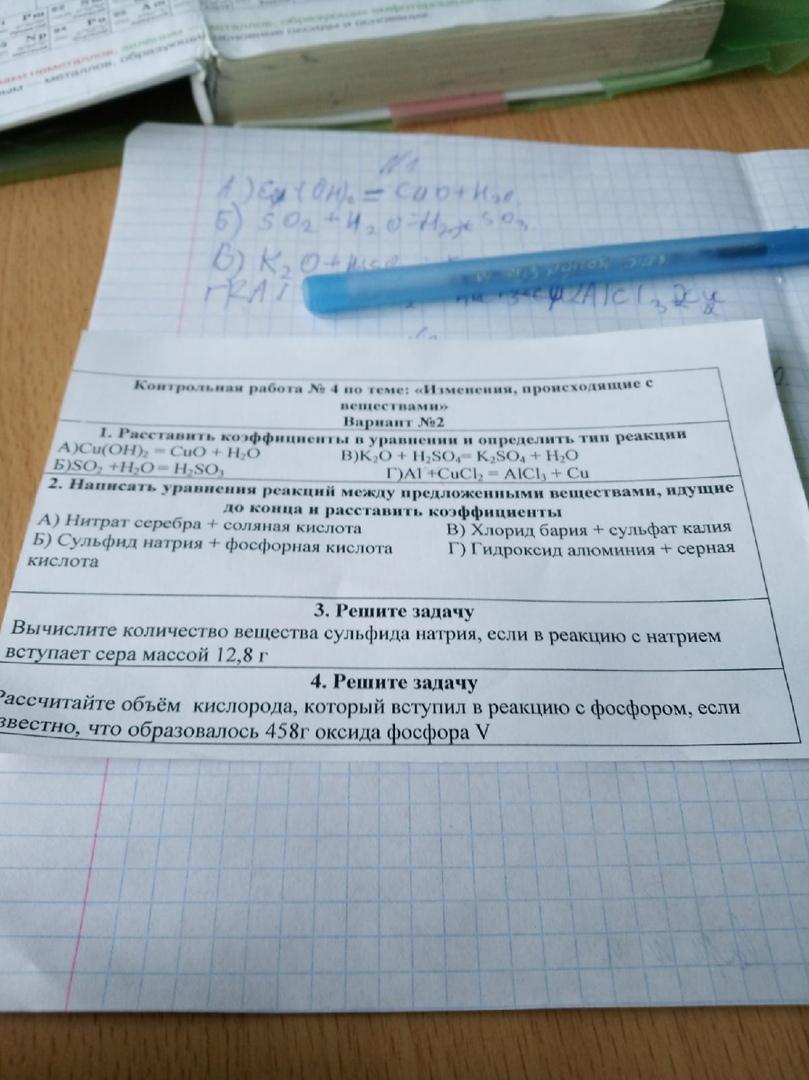 Pm
Np
Pa
Am
№1
А) Cu(OH)₂ = CuO + H₂O
Б) SO₂ + H₂O = H₂SO₃
В) K₂O +
Контрольная работа № 4 по теме: «Изменения, происходящие с
веществами»
Вариант №2
1. Расставить коэффициенты в уравнении и определить тип реакции
А)Cu(OH)₂ = CuO + H₂O В)K₂O + H₂SO₄= K₂SO₄ + H₂O
Б)SO₂ +H₂O = H₂SO₃ Г)Al +CuCl₂ = AlCl₃ + Cu
2. Написать уравнения реакций между предложенными веществами, идущие
до конца и расставить коэффициенты
А) Нитрат серебра + соляная кислота В) Хлорид бария + сульфат калия
Б) Сульфид натрия + фосфорная кислота Г) Гидроксид алюминия + серная
кислота
3. Решите задачу
Вычислите количество вещества сульфида натрия, если в реакцию с натрием
вступает сера массой 12,8 г
4. Решите задачу
Рассчитайте объём кислорода, который вступил в реакцию с фосфором, если
звестно, что образовалось 458г оксида фосфора V